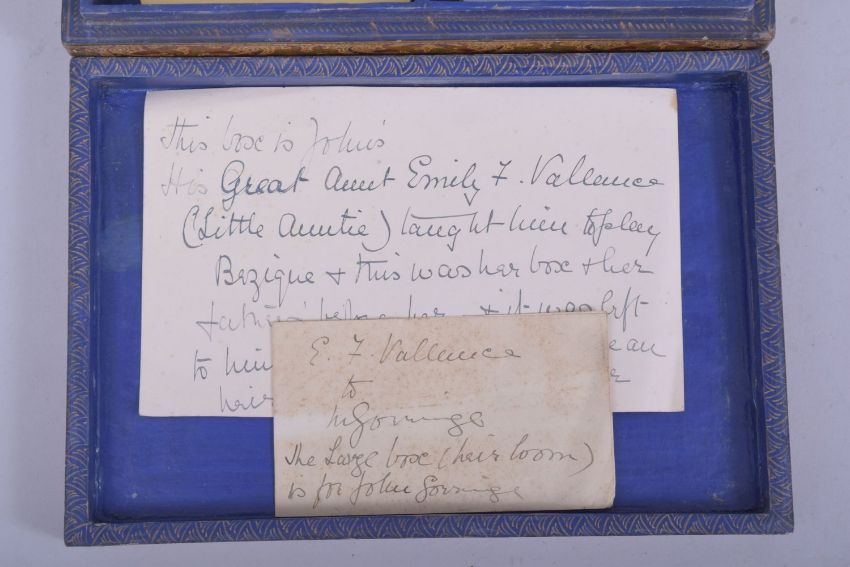 This box is John's
His Great Aunt Emily F. Vallance
(Little Auntie) taught him to play
Bezique & this was her box & her
father's before her & it was left
to him an
heir
E. F. Vallance
to
Gorringe
The Large box (heir loom)
is for John Gorringe